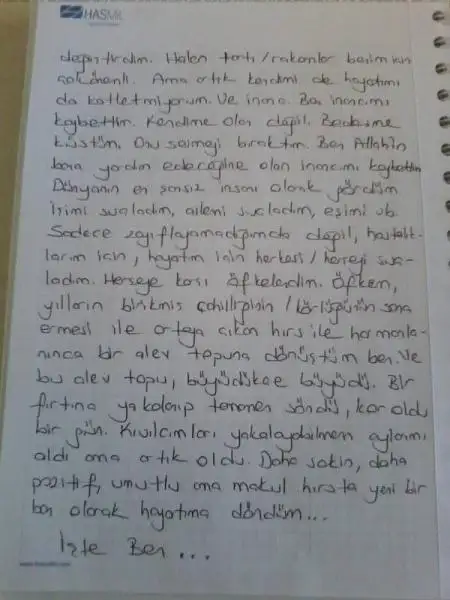 HASMİ
değiştirdim. Halen tartı/rakamlar benim için
çok önemli. Ama artık kendimi de hayatımı
da katletmiyorum. Ve inanç. Ben inancımı
kaybettim. Kendime olan değil. Bedenime
küstüm. Onu sevmeyi bıraktım. Ben Allah'ın
bana yardım edeceğine olan inancımı kaybettim
Dünyanın en şanssız insanı olarak gördüm
İşimi suçladım, ailemi suçladım, eşimi vb.
Sadece zayıflayamadığımda değil, hastalık-
larım için, hayatım için herkesi/herşeyi suç-
ladım. Herşeye karşı öfkelendim. Öfken,
yılların birikmiş cahilliğinin / körlüğünün sona
ermesi ile ortaya çıkan hırs ile harmanla-
nınca bir alev topuna dönüştüm ben. Ve
bu alev topu, büyüdükçe büyüdü. Bir
fırtına yakalanıp tamamen söndü, kor oldu
bir gün. Kıvılcımları yakalayabilmem aylarımı
aldı ama artık oldu. Daha sakin, daha
pozitif, umutlu ama makul hırsta yeni bir
ben olarak hayatıma döndüm...
İşte Ben...